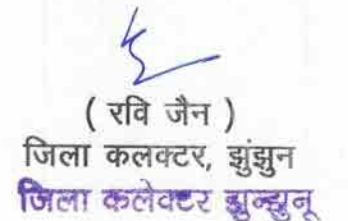 ( रवि जैन )
जिला कलक्टर, झुंझुन
जिला कलेक्टर झुन्झुनू